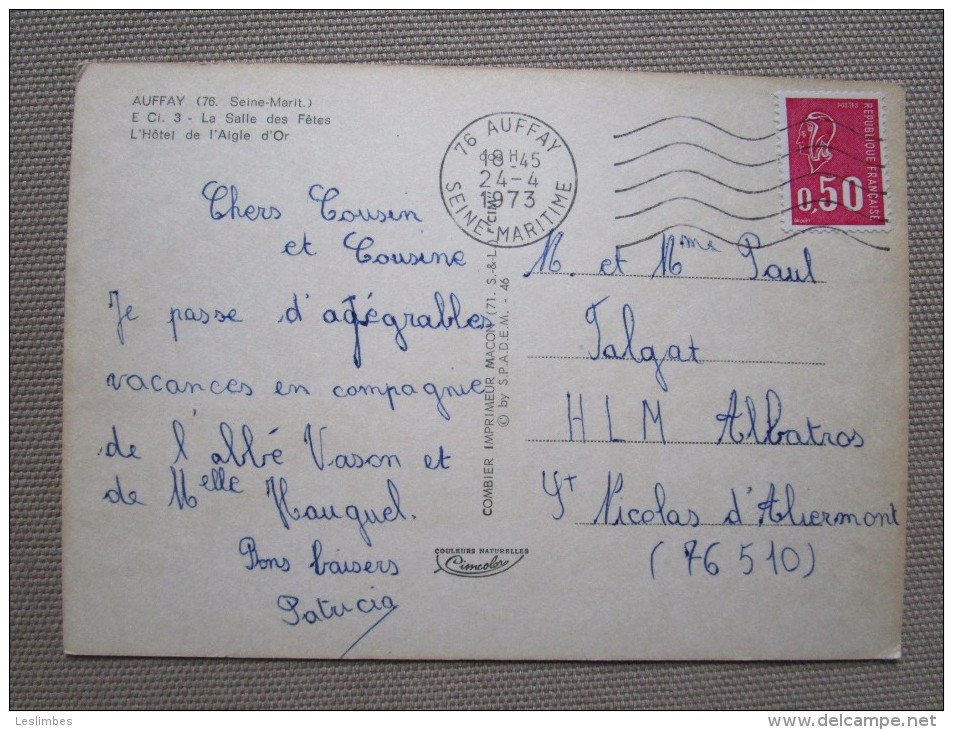 AUFFAY (76. Seine-Marit.)
E Ci. 3 - La Salle des Fêtes
L'Hôtel de l'Aigle d'Or
Chers Cousin
et Cousine
Je passe d'agégrables
vacances en compagnie
de l'abbé Vason et
de Melle Hauguel.
Bons baisers
Patricia
COMBIER IMPRIMEUR MACON (71. S.-&-L.) "CIM"
© by S.P.A.D.E.M. - 46
COULEURS NATURELLES
Cimcolor
76 AUFFAY
18 H 45
24-4
1973
SEINE-MARITIME
POSTES
REPUBLIQUE FRANÇAISE
0,50
M. et Mme Paul
Talgat
HLM Albatros
St Nicolas d'Aliermont
(76 510)
Leslimbes
delcampe.net